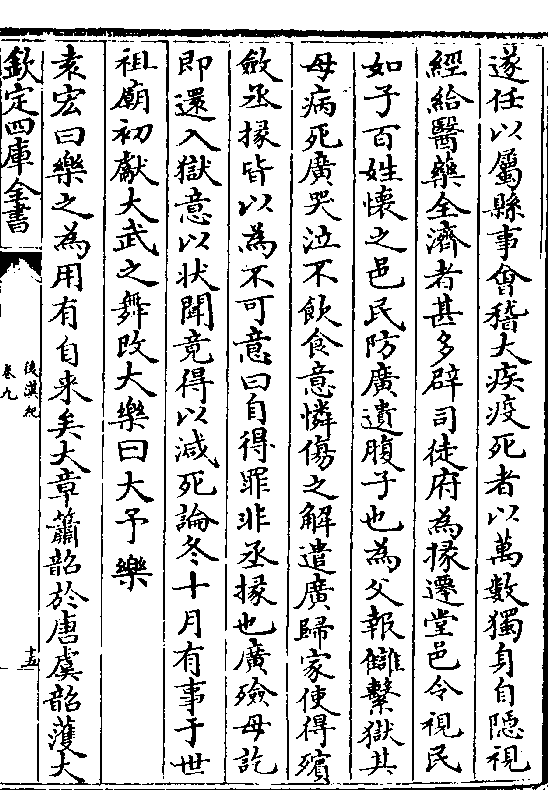 遂任以屬縣事會稽大疾疫死者以萬數獨身自隱視
經給醫藥全濟者甚多辟司徒府為掾遷堂邑令視民
如子百姓懷之邑民防廣遺腹子也為父報讎繫獄其
母病死廣哭泣不飲食意憐傷之解遣廣歸家使得殯
斂丞掾皆以為不可意曰自得罪非丞掾也廣殮母訖
即還入獄意以狀聞竟得以減死論冬十月有事于世
祖廟初獻大武之舞改大樂曰大予樂
袁宏曰樂之為用有自来矣大章簫韶於唐虞韶濩大
欽定四庫全書
後漢紀
卷九
十五